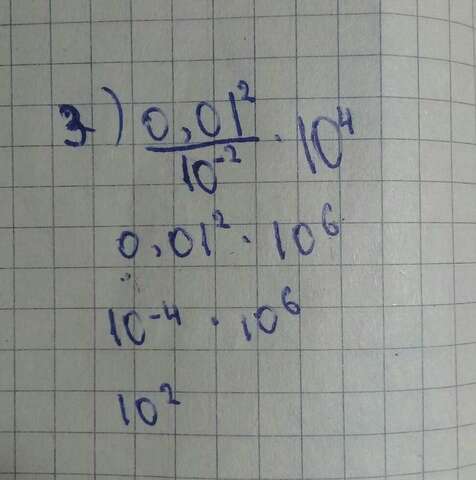 3) 0,01²/10⁻² · 10⁴
0,01² · 10⁶
10⁻⁴ · 10⁶
10²